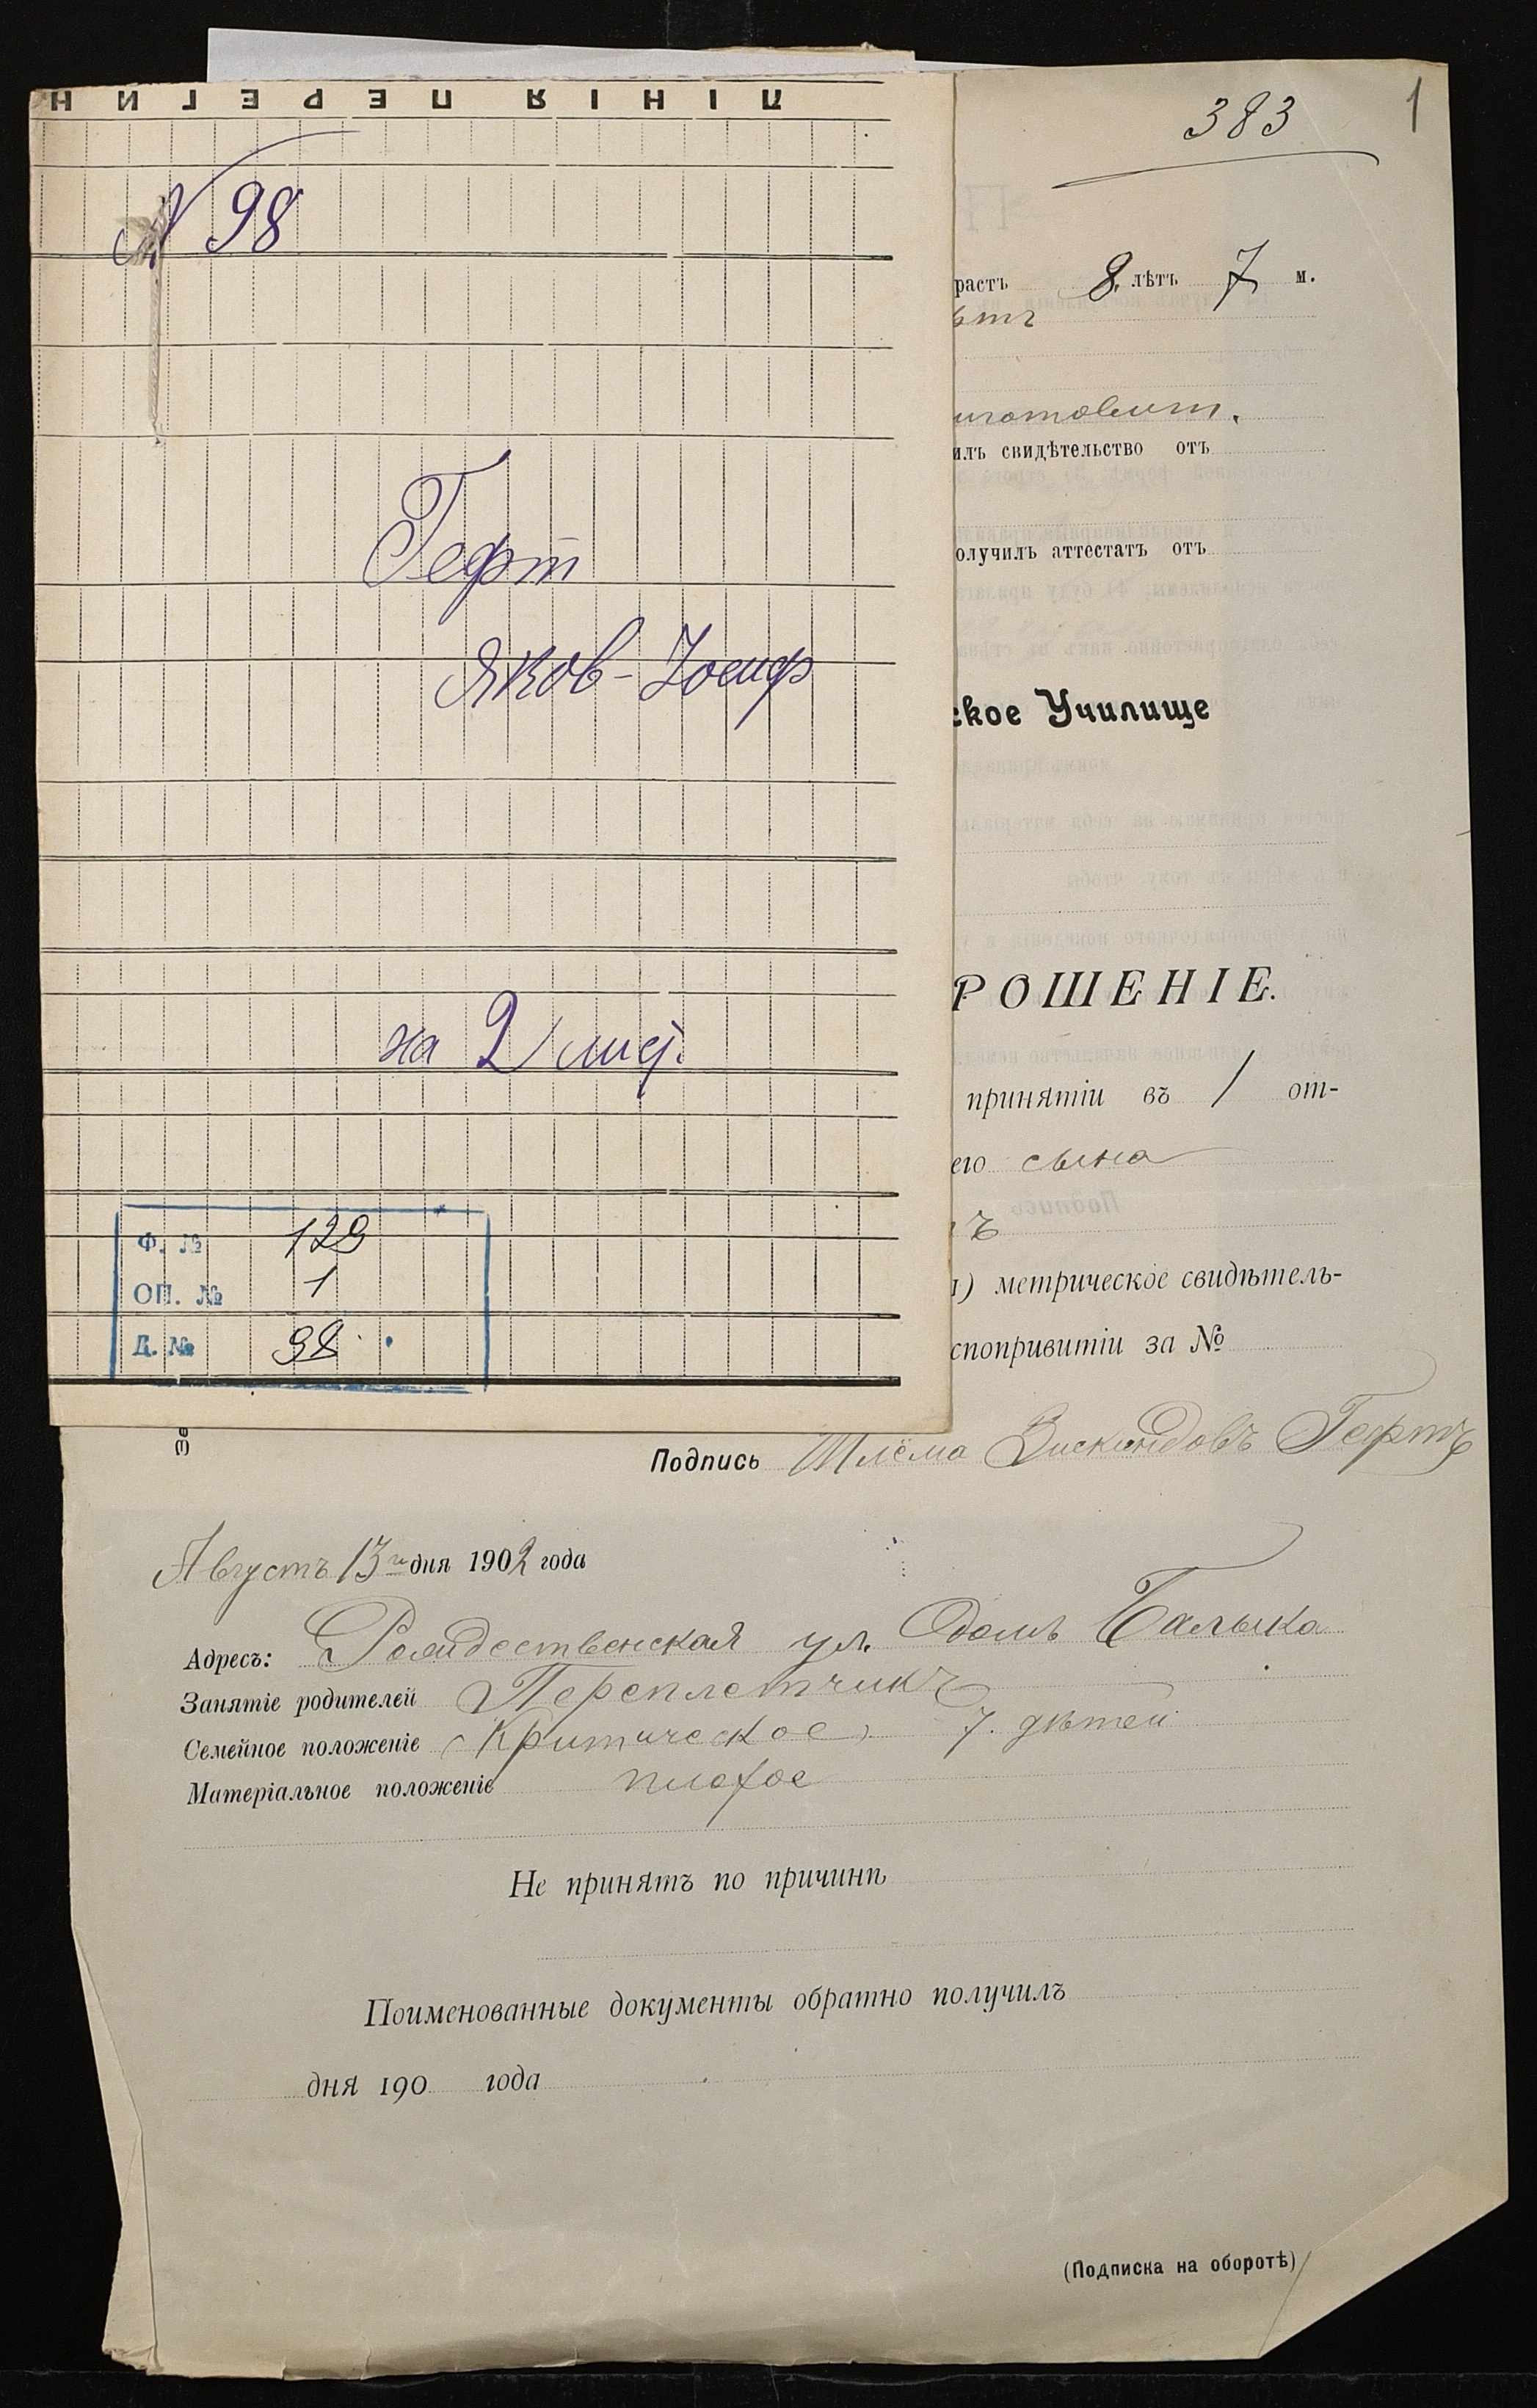 П І Н І Я П Е Р Е Г И Н
N 98
Гефт
Яков-Иосиф
на 2 лист.
Ф. № 129
ОП. № 1
Д. № 98
383
1
растъ 8 лѣтъ 7 м.
ѣтъ
илъ свидѣтельство отъ
олучилъ аттестатъ отъ
ское Училище
РОШЕНІЕ.
принятіи въ 1 от-
его сына
ъ
метрическое свидѣтель-
спопривитіи за №
Подпись Шлёма Зискиндовъ Гефтъ
Августъ 13го дня 1902 года
Адресъ: Рождественская ул. домъ Балыка
Занятіе родителей Переплетчикъ
Семейное положеніе Критическое 7. дѣтей
Матеріальное положеніе плохое
Не принятъ по причинѣ
Поименованные документы обратно получилъ
дня 190 года
(Подписка на оборотѣ)